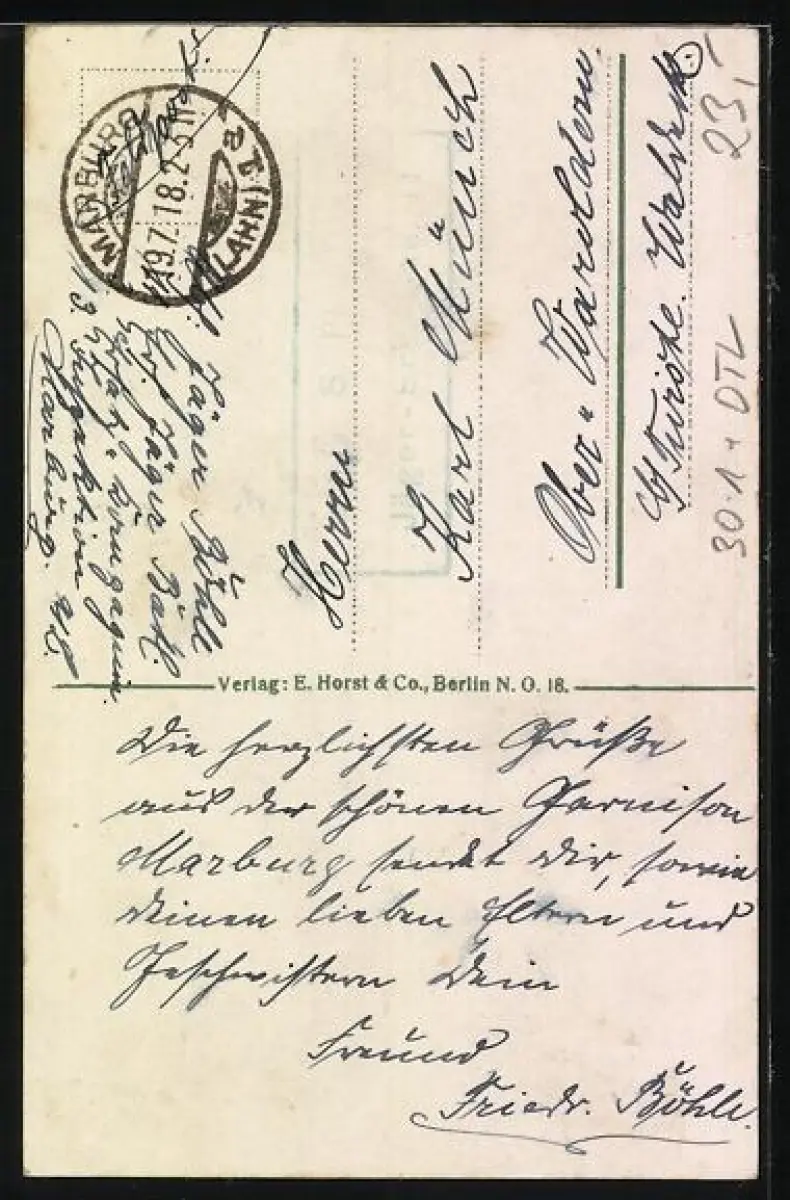 Feldpost.
MARBURG
19.7.18.2-3N
(LAHN) 1
a
Jäger Böhle
Ers. Jäger Batl.
Marburg. a/L.
Herrn
Karl Münch
Ober-Waroldern.
Waldeck.
23,-
30·1·4 OTL
Verlag: E. Horst & Co., Berlin N. O. 18.
Die herzlichsten Grüße
aus der schönen Garnison
Marburg sendet Dir, sowie
Deinen lieben Eltern und
Geschwistern Dein
Freund
Friedr. Böhle.